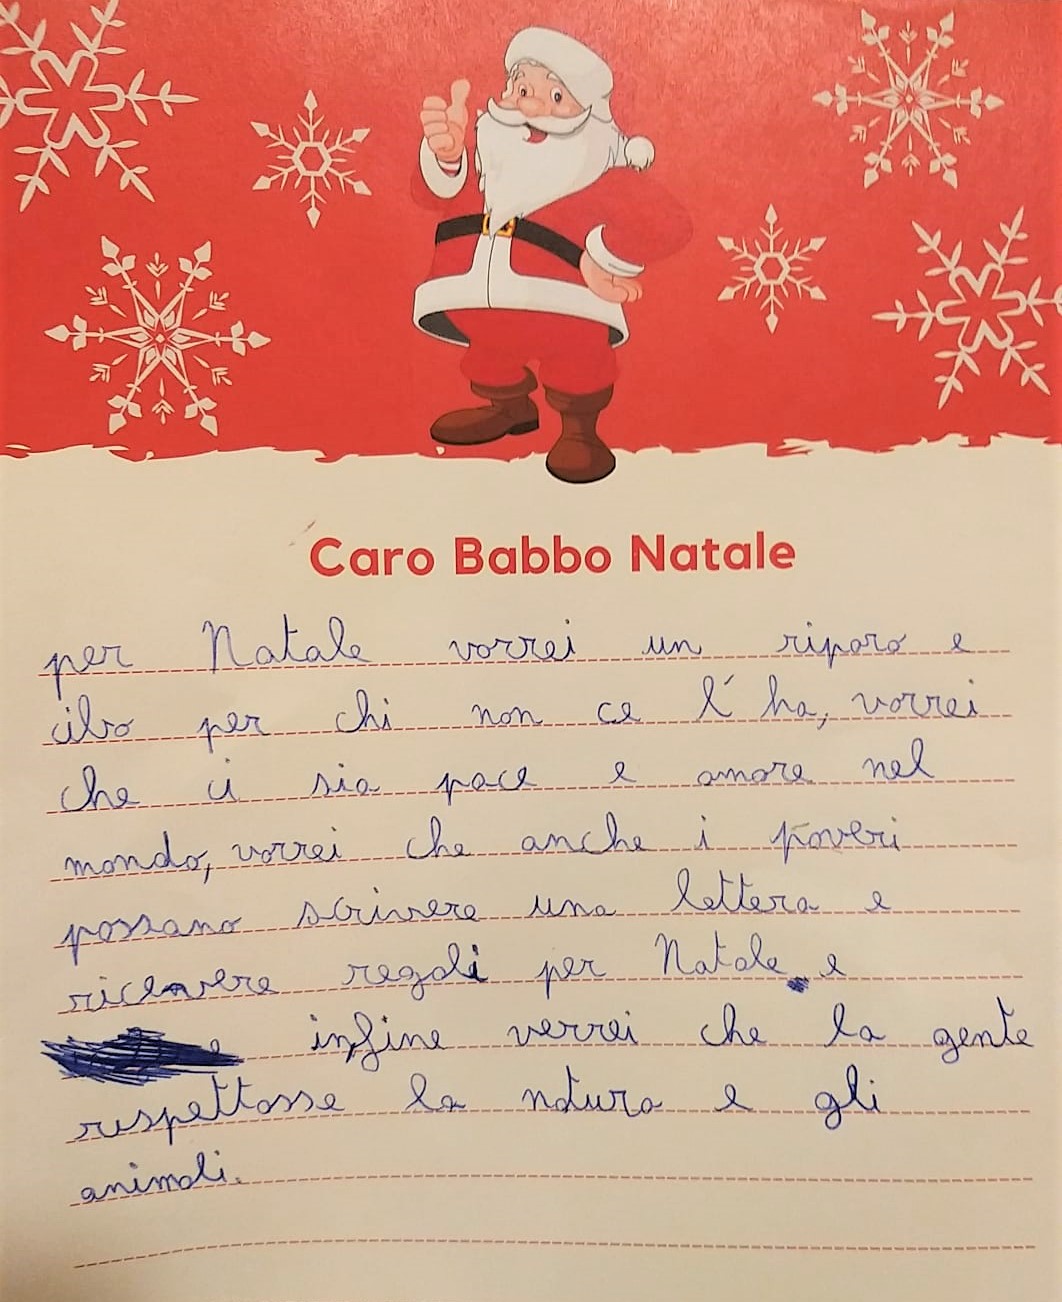 Caro Babbo Natale
per Natale vorrei un riparo e
cibo per chi non ce l'ha, vorrei
che ci sia pace e amore nel
mondo, vorrei che anche i poveri
possano scrivere una lettera e
ricevere regali per Natale e
infine verrei che la gente
rispettasse la natura e gli
animali.